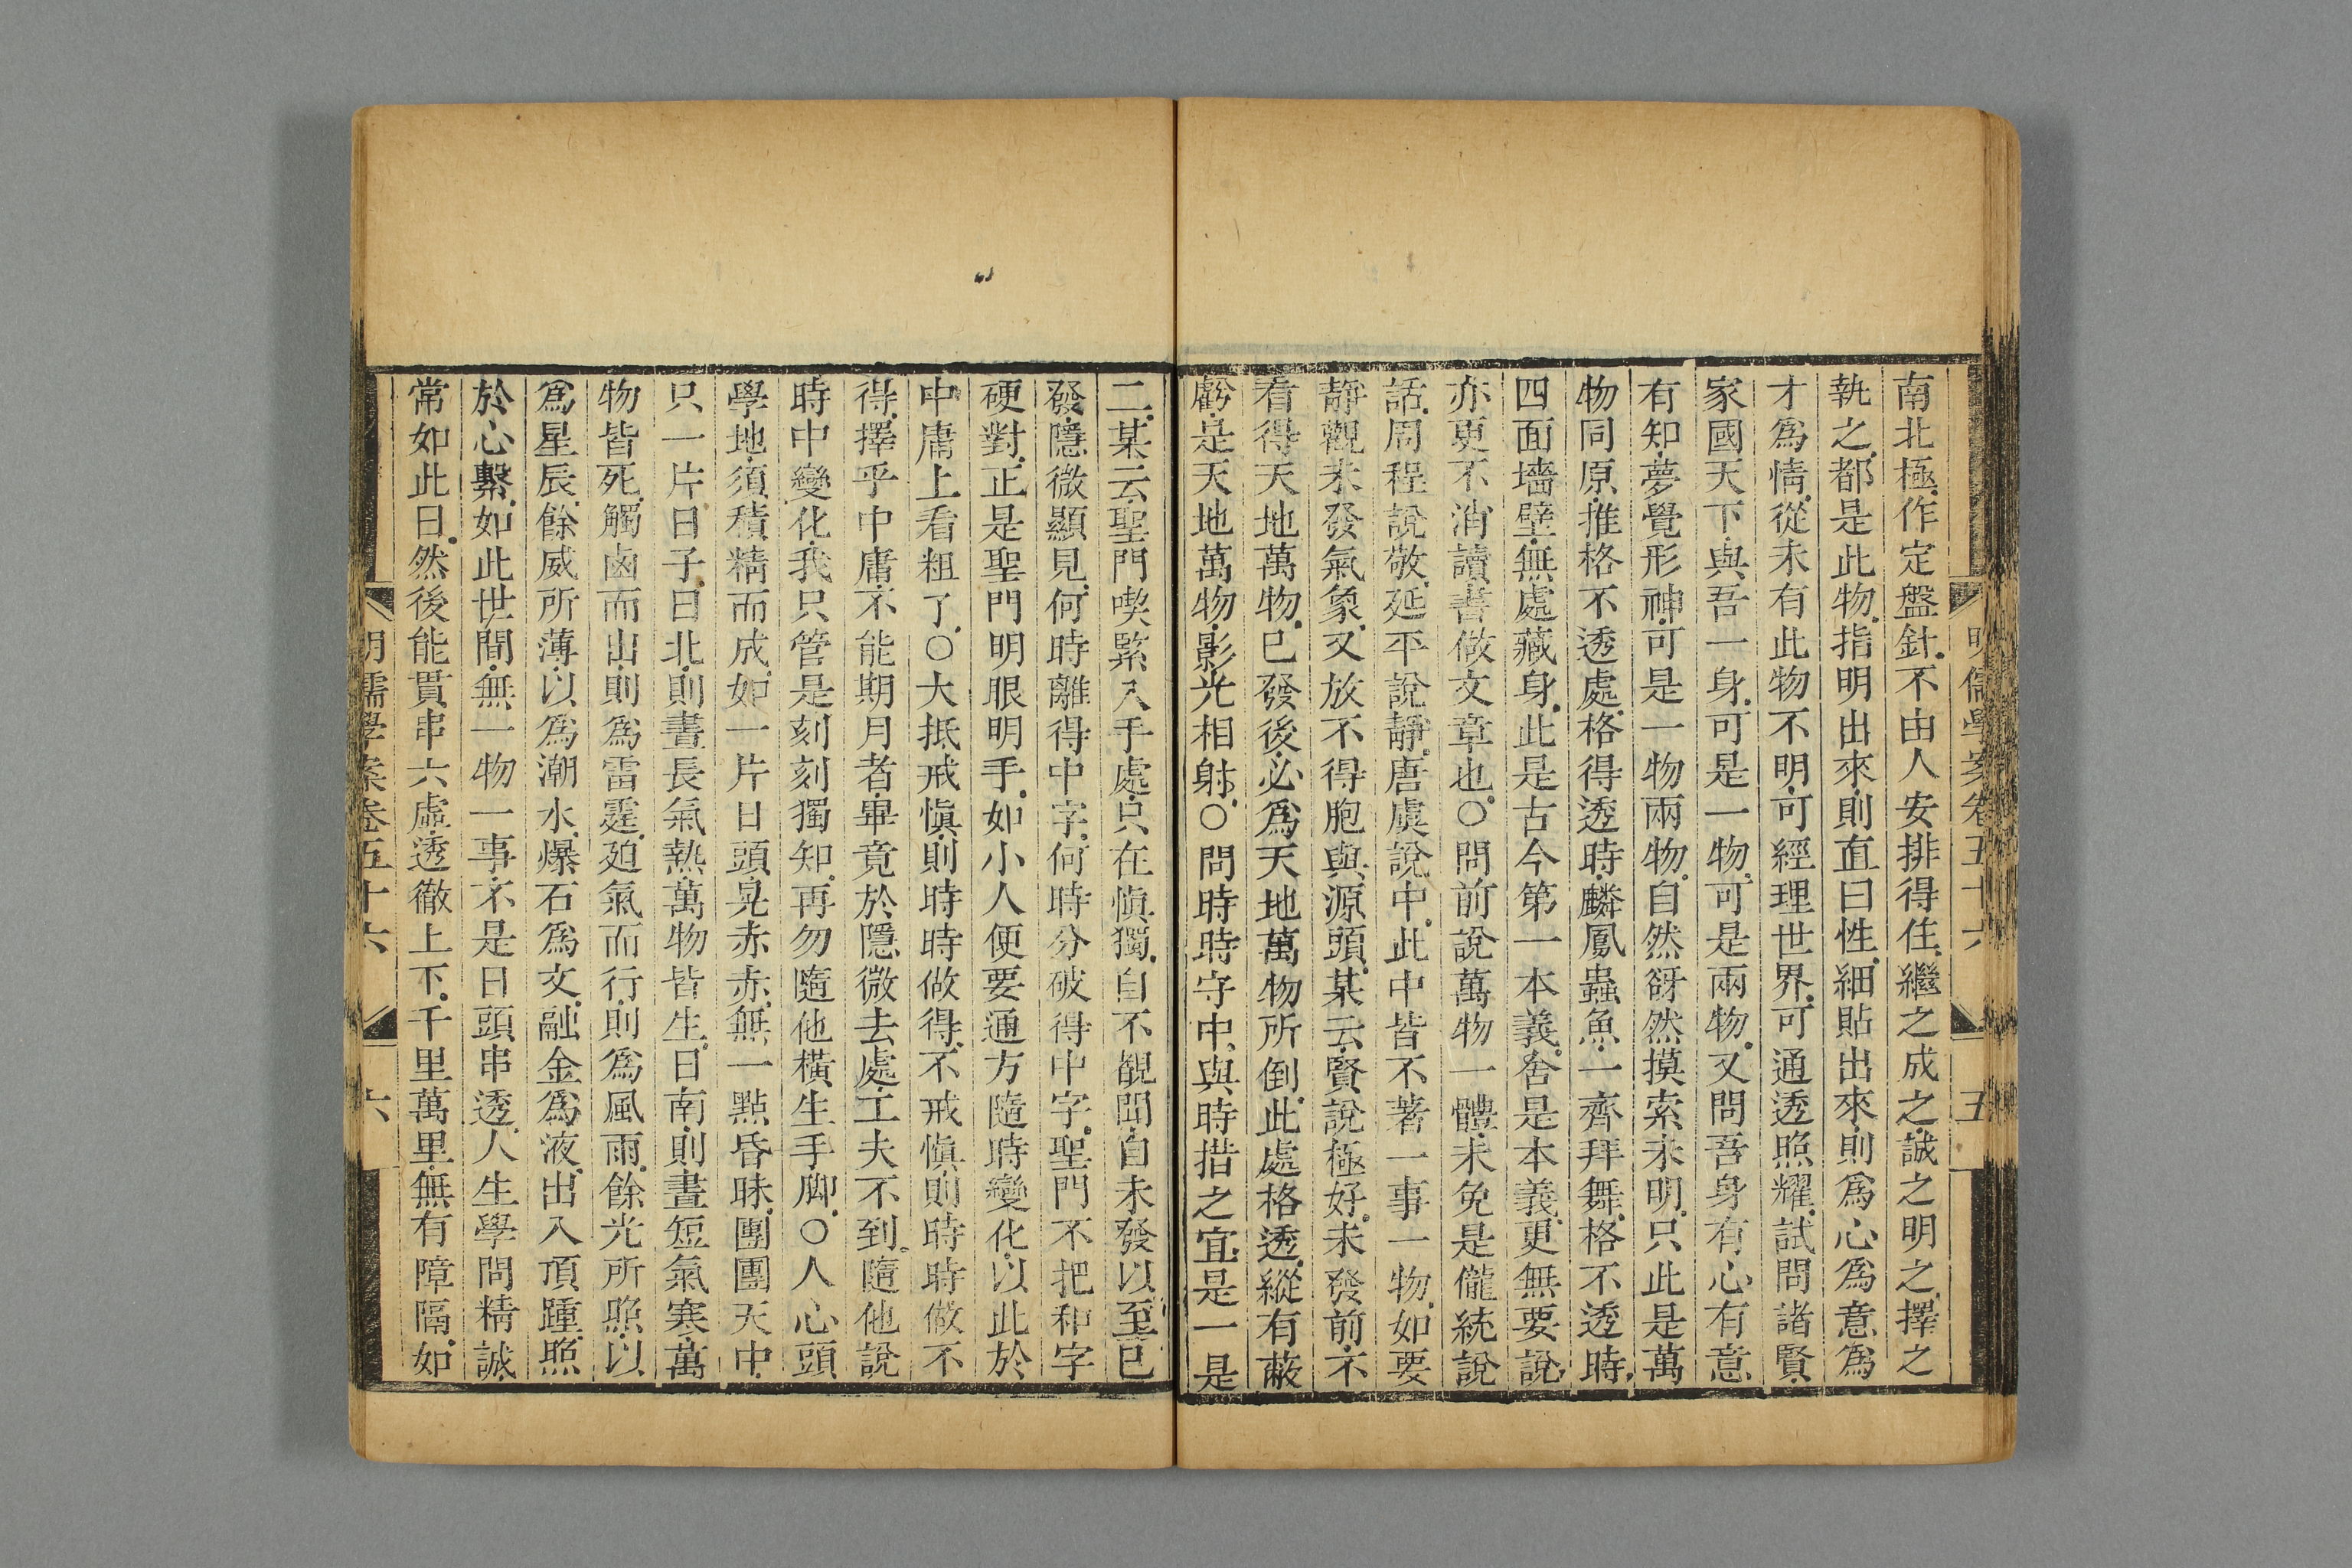 明儒學案卷五十六 五
南北極作定盤針不由人安排得住繼之成之誠之明之擇之
執之都是此物指明出來則直曰性細貼出來則爲心爲意爲
才爲情從未有此物不明可經理世界可通透照耀試問諸賢
家國天下與吾一身可是一物可是兩物又問吾身有心有意
有知夢覺形神可是一物兩物自然谺然摸索未明只此是萬
物同原推格不透處格得透時麟鳳蟲魚一齊拜舞格不透時
四面墻壁無處藏身此是古今第一本義舍是本義更無要說
亦更不消讀書做文章也○問前說萬物一體未免是儱統說
話周程說敬延平說靜唐虞說中此中皆不著一事一物如要
靜觀未發氣象又放不得胞與源頭某云賢說極好未發前不
看得天地萬物已發後必爲天地萬物所倒此處格透縱有蔽
虧是天地萬物影光相射○問時時守中與時措之宜是一是
二某云聖門喫緊入手處只在愼獨自不覩聞自未發以至已
發隱微顯見何時離得中字何時分破得中字聖門不把和字
硬對正是聖門明眼明手如小人便要通方隨時變化以此於
中庸上看粗了○大抵戒愼則時時做得不戒愼則時時做不
得擇乎中庸不能期月者畢竟於隱微去處工夫不到隨他說
時中變化我只管是刻刻獨知再勿隨他橫生手脚○人心頭
學地須積精而成如一片日頭晃赤赤無一點昏昧團團天中
只一片日子日北則晝長氣熱萬物皆生日南則晝短氣寒萬
物皆死觸鹵而出則爲雷霆廹氣而行則爲風雨餘光所照以
爲星辰餘威所薄以爲潮水爆石爲文融金爲液出入頂踵照
於心繫如此世間無一物一事不是日頭串透人生學問精誠
常如此日然後能貫串六虛透徹上下千里萬里無有障隔如
明儒學案卷五十六 六